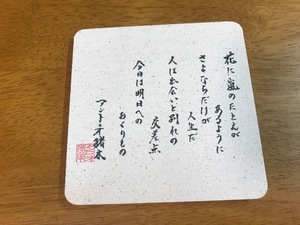 花に嵐のたとえが
あるように
さよならだけが
人生だ
人は出会いと別れの
交差点
今日は明日への
おくりもの
アントニオ猪木